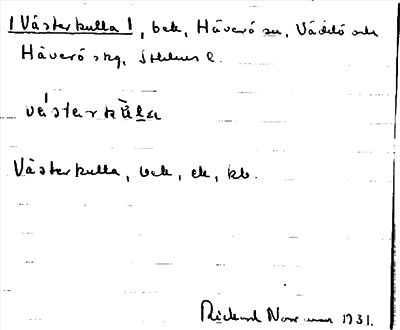 |Västerkulla|, bek, Häverö sn, Väddö och
Häverö skg, Sthlms l.
västerkùla
Västerkulla, bek, ek, kb.
Rickard Norrman 1931.